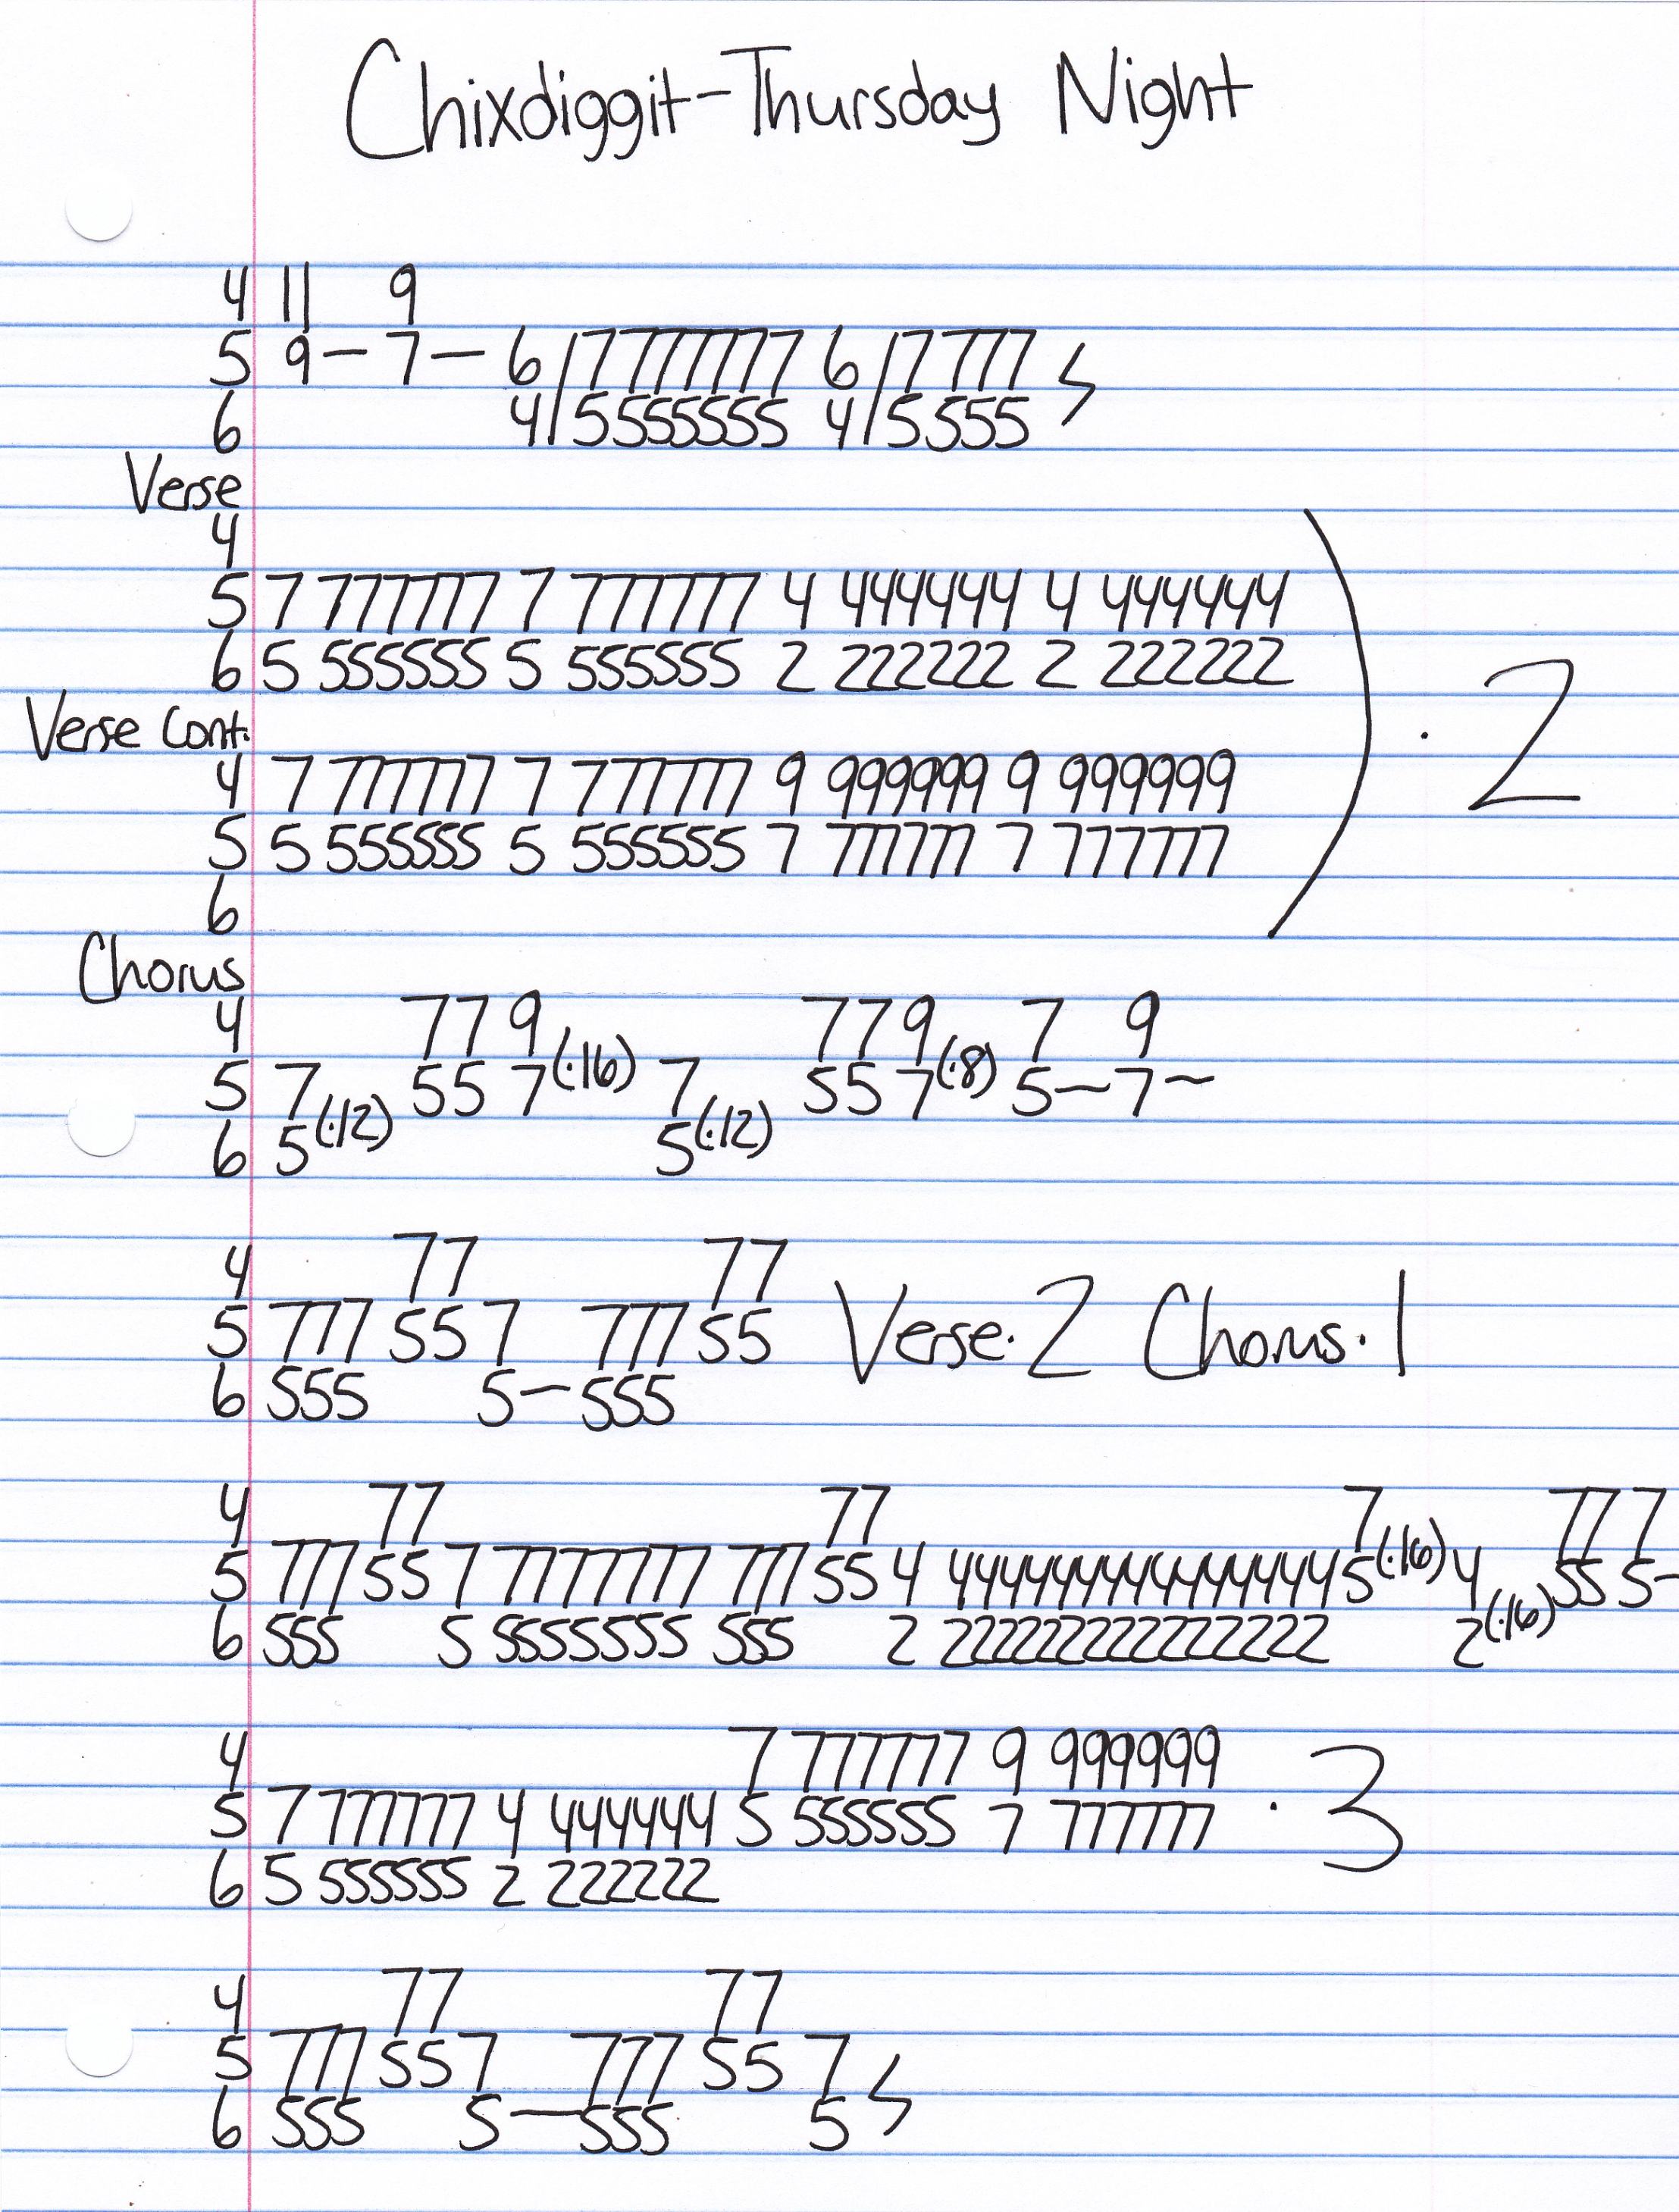 Chixdiggit-Thursday Night
4 11 9
5 9 — 7 — 6/7777777 6/7777
6 4/5555555 4/5555
Verse
4
5 7 777777 7 777777 4 444444 4 444444
6 5 555555 5 555555 2 222222 2 222222
·2
Verse Cont.
4 7 777777 7 777777 9 999999 9 999999
5 5 555555 5 555555 7 777777 7 777777
6
Chorus
4 77 9 77 9 7 9
5 7 55 7(·16) 7 55 7(·8) 5— 7—
6 5(·12) 5(·12)
4 77 77
5 777 55 7 777 55
6 555 5—555
Verse·2 Chorus·1
4 77 77 7 77 7
5 777 55 7 7777777 777 55 4 44444444444444 5(·16) 4 55 5-
6 555 5 5555555 555 2 22222222222222 2(·16)
4 7 777777 9 999999
5 7 777777 4 444444 5 555555 7 777777 ·3
6 5 555555 2 222222
4 77 77
5 777 55 7 777 55 7
6 555 5—555 5